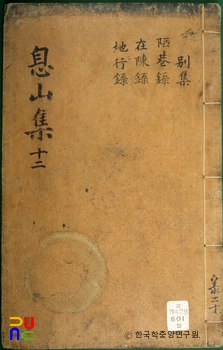 別集
陋巷錄
在陳錄
地行錄
息山集 十二
ⓒ 한국학중앙연구원